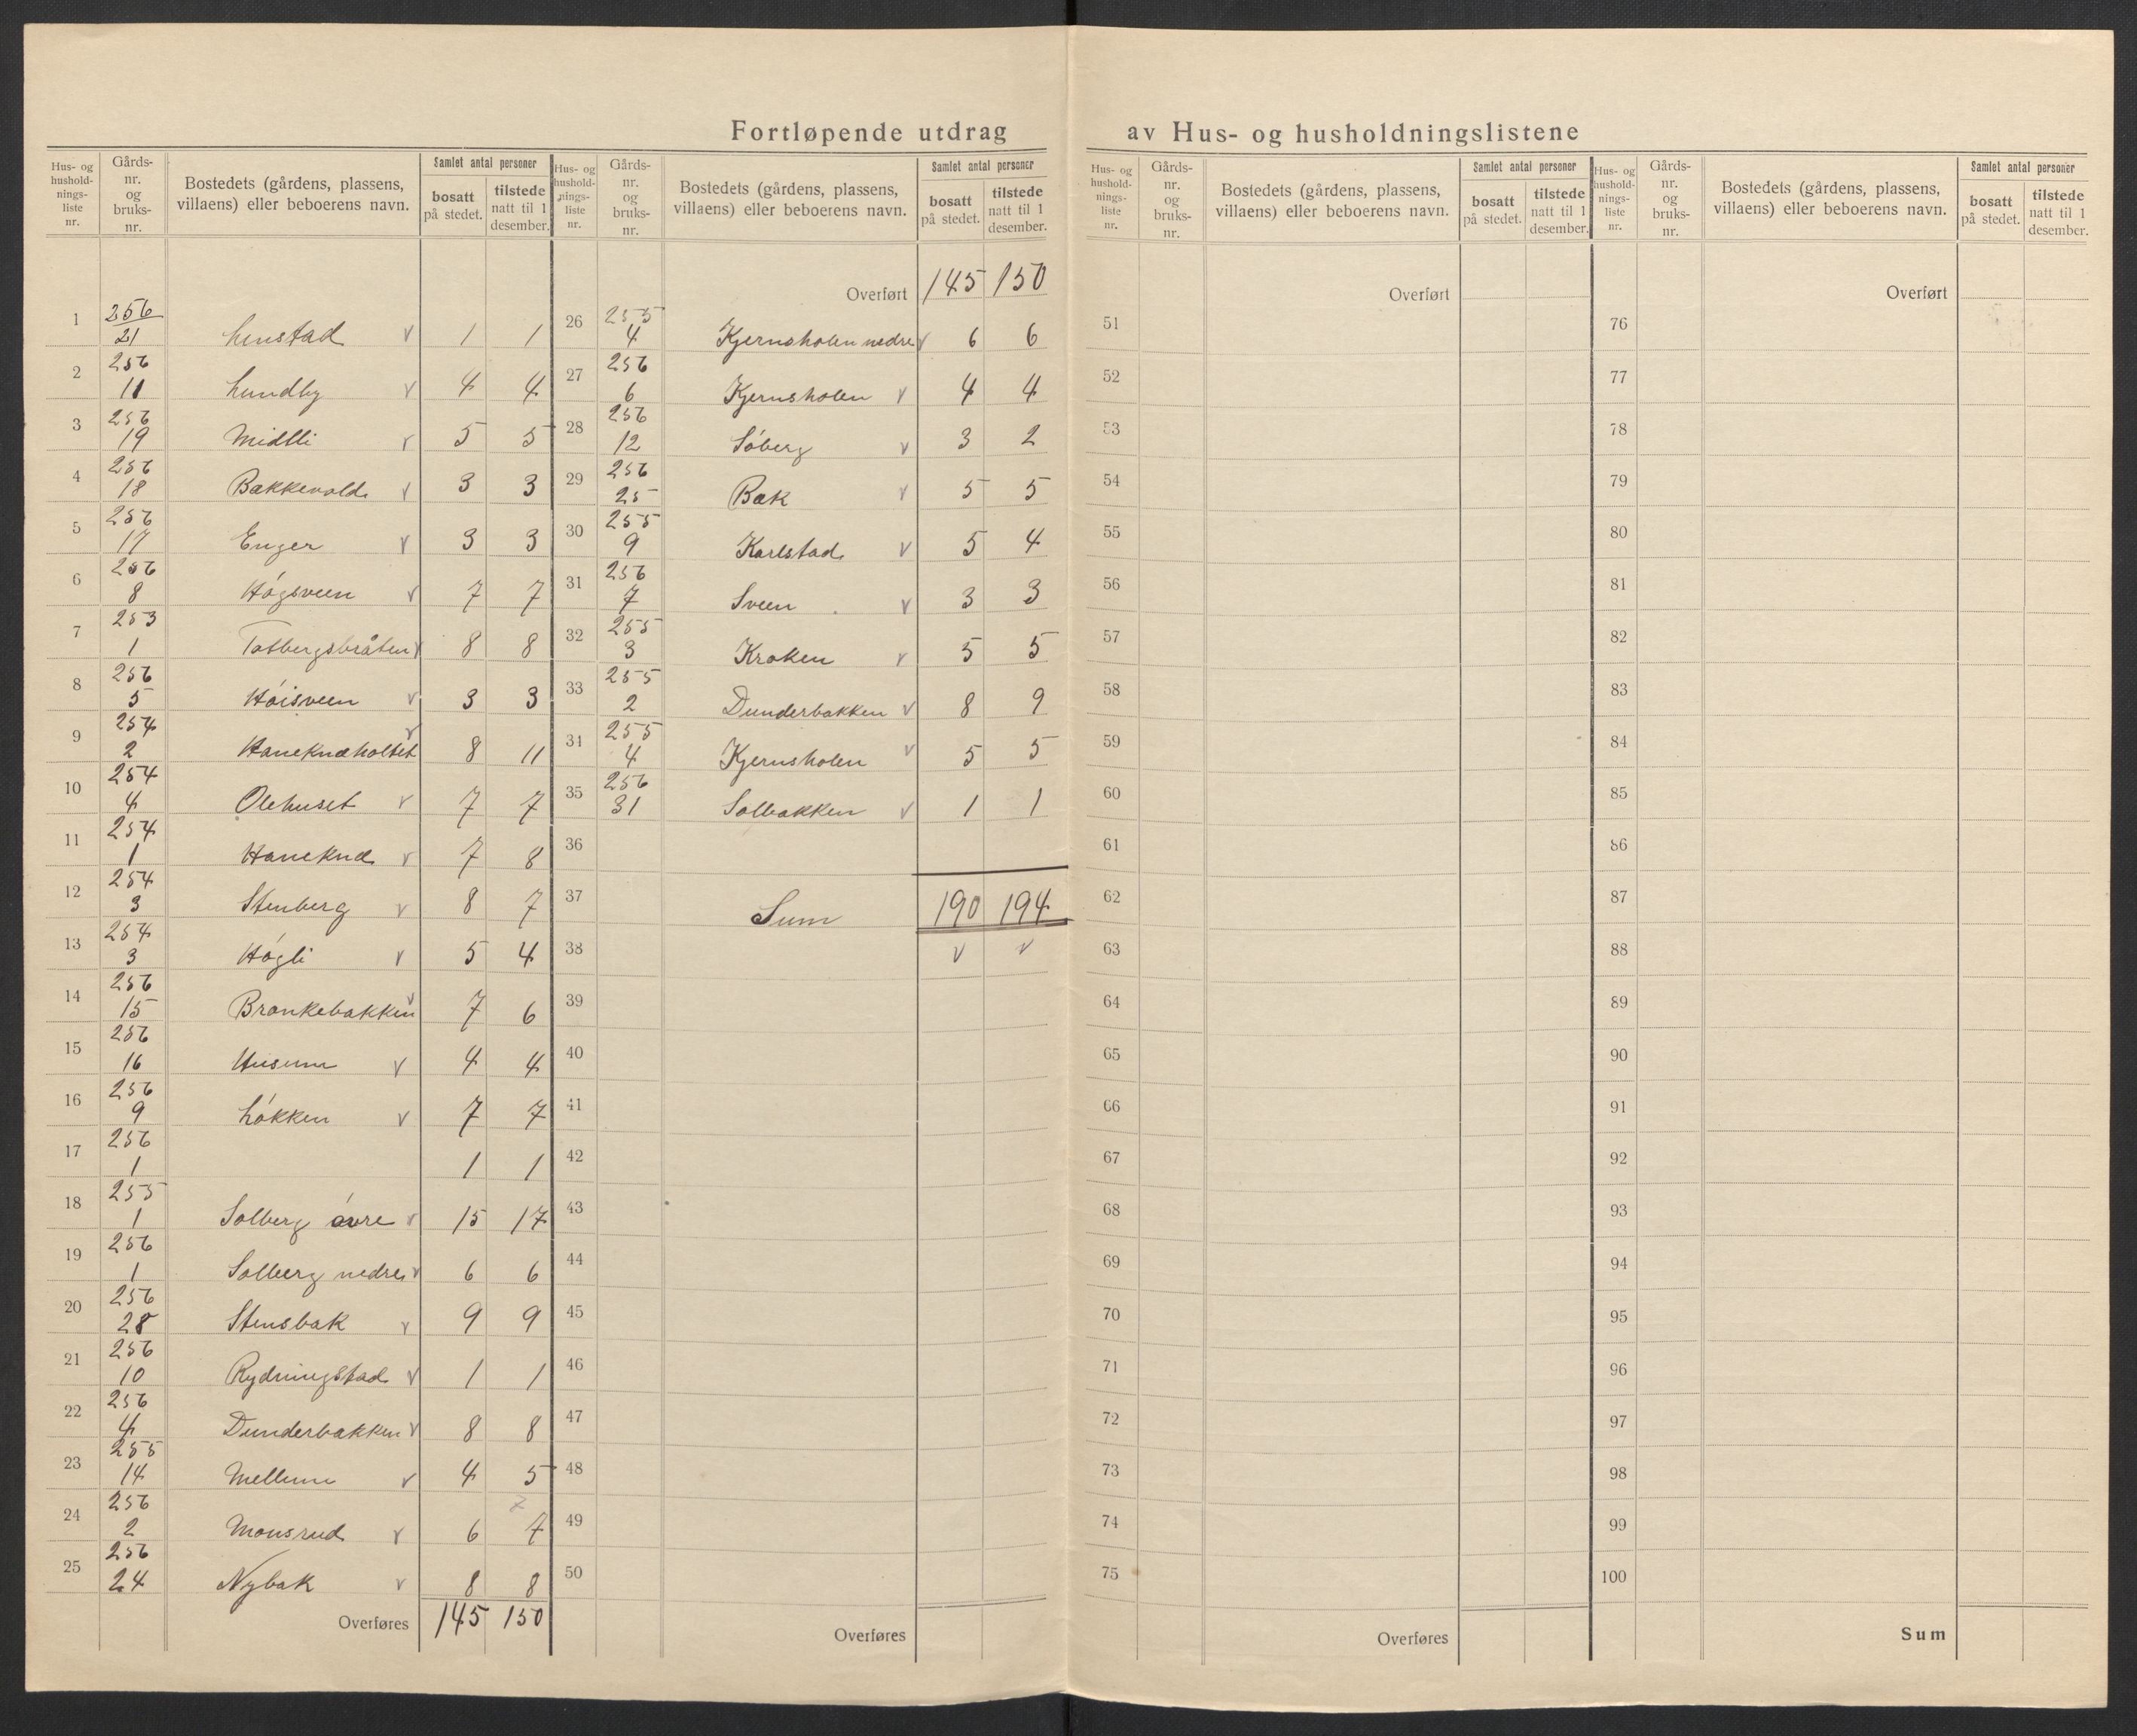 Fortløpende utdrag av Hus- og husholdningslistene
Hus- og hushold-nings-liste nr. Gårds-nr. og bruks-nr. Bostedets (gårdens, plassens, villaens) eller beboerens navn. Samlet antal personer bosatt på stedet. tilstede natt til 1 desember.
1 256/21 Linstad v 1 1
2 256 11 Lundby v 4 4
3 256 19 Midtli v 5 5
4 256 18 Bakkevold v 3 3
5 256 17 Enger v 3 3
6 256 8 Høgsveen v 7 7
7 253 1 Tosbergsbråten v 8 8
8 256 5 Høisveen v 3 3
9 254 2 Haneknæholtet v 8 11
10 254 4 Olehuset v 7 7
11 254 1 Haneknæ v 7 8
12 254 3 Stenberg v 8 7
13 254 3 Høgli v 5 4
14 256 15 Brænkebakken v 7 6
15 256 16 Husum v 4 4
16 256 9 Løkken v 7 7
17 256 1 1 1
18 255 1 Solberg øvre v 15 17
19 256 1 Solberg nedre v 6 6
20 256 28 Stensbæk v 9 9
21 256 10 Rydningstad v 1 1
22 256 4 Dunderbakken v 8 8
23 255 14 Mellum v 4 5
24 256 2 Monsrud v 6 7
25 256 24 Nybæk v 8 8
Overføres 145 150
Hus- og hushold-nings-liste nr. Gårds-nr. og bruks-nr. Bostedets (gårdens, plassens, villaens) eller beboerens navn. Samlet antal personer bosatt på stedet. tilstede natt til 1 desember.
Overført 145 150
26 255 4 Kjernsholen nedre v 6 6
27 256 6 Kjernsholen v 4 4
28 256 12 Søberg v 3 2
29 256 25 Bæk v 5 5
30 255 9 Karlstad v 5 4
31 256 7 Sveen v 3 3
32 255 3 Kroken v 5 5
33 255 2 Dunderbakken v 8 9
34 255 4 Kjernsholen v 5 5
35 256 31 Solbakken v 1 1
36
37 Sum 190 194
38 v v
39
40
41
42
43
44
45
46
47
48
49
50
Overføres
Hus- og hushold-nings-liste nr. Gårds-nr. og bruks-nr. Bostedets (gårdens, plassens, villaens) eller beboerens navn. Samlet antal personer bosatt på stedet. tilstede natt til 1 desember.
Overført
51
52
53
54
55
56
57
58
59
60
61
62
63
64
65
66
67
68
69
70
71
72
73
74
75
Overføres
Hus- og hushold-nings-liste nr. Gårds-nr. og bruks-nr. Bostedets (gårdens, plassens, villaens) eller beboerens navn. Samlet antal personer bosatt på stedet. tilstede natt til 1 desember.
Overført
76
77
78
79
80
81
82
83
84
85
86
87
88
89
90
91
92
93
94
95
96
97
98
99
100
Sum